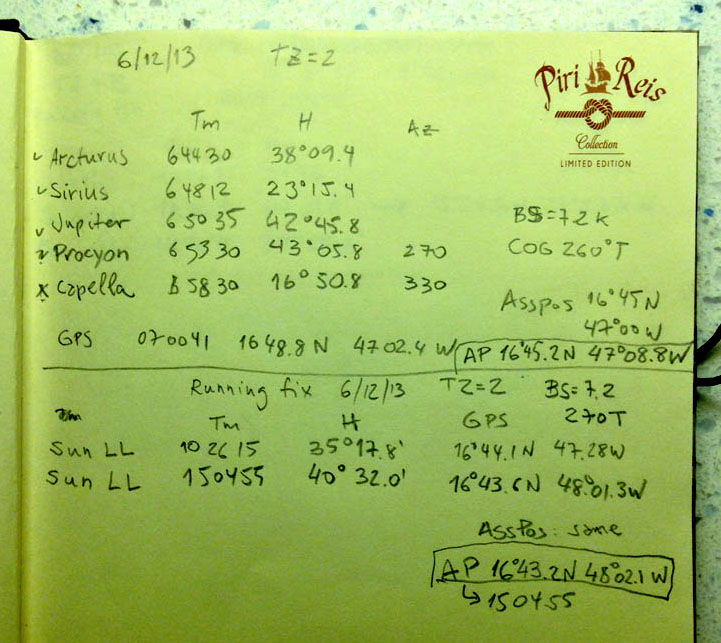 6/12/13 TZ=2
Piri Reis
Collection
LIMITED EDITION
Tm H Az
✓ Arcturus 64430 38°09.4
✓ Sirius 64812 23°15.4
✓ Jupiter 65035 42°45.8
Procyon 65330 43°05.8 270
x Capella 65830 16°50.8 330
BS=7.2k
COG 260°T
Asspos 16°45N
47°00W
GPS 070041 1648.8N 4702.4W
AP 16°45.2N 47°08.8W
Running fix 6/12/13 TZ=2 BS=7.2
Tm H GPS 270T
Sun LL 102615 35°17.8' 16°44.1N 47.28W
Sun LL 150455 40°32.0' 16°43.6N 48°01.3W
AssPos: same
AP 16°43.2N 48°02.1W
↳150455